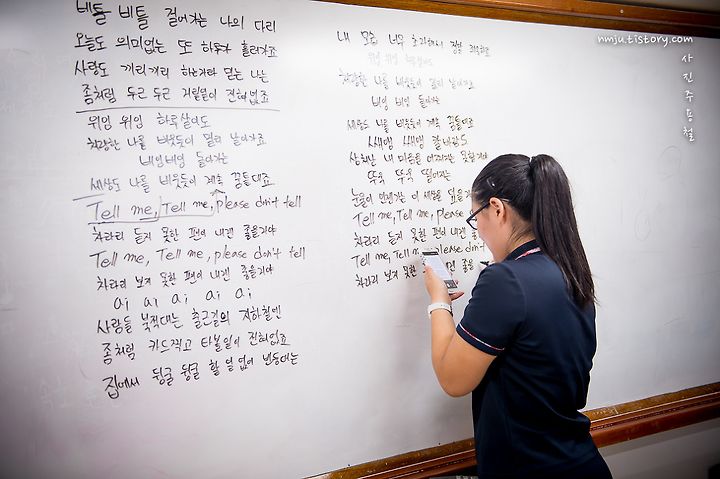 비틀 비틀 걸어가는 나의 다리
오늘도 의미없는 또 하루가 흘러가죠
사랑도 끼리끼리 하는거라 믿는 나는
좀처럼 두근 두근 거릴일이 전혀없죠
위잉 위잉 하루살이도
처량한 나를 비웃듯이 멀리 날아가죠
비잉비잉 돌아가는
세상도 나를 비웃듯이 계속 꿈틀대죠
Tell me, Tell me, please don't tell
차라리 듣지 못한 편이 내겐 좋을거야
Tell me, Tell me, please don't tell
차라리 보지 못한 편이 내겐 좋을거야
사람들 북적대는 출근길의 지하철엔
좀처럼 카드찍고 타볼일이 전혀없죠
집에서 뒹굴 뒹굴 할 일 없어 빈둥대는
내 모습 너무 초라해서 정말
위잉 위잉
처량한 나를 비웃듯이 멀리 날아가죠
비잉 비잉 돌아가는
세상도 나를 비웃듯이 계속 꿈틀대죠
쌔앵 쌔앵 칼바람도
상처난 내 마음을 어쩌지는 못할거야
뚜욱 뚜욱 떨어지는
눈물이 언젠가는 이 세상을 덮을
Tell me, Tell me, please
차라리 듣지 못한 편이 내겐 좋을
Tell me, Tell me, please don't
차라리 보지 못한 편 좋을
nmju.tistory.com
사진주용철